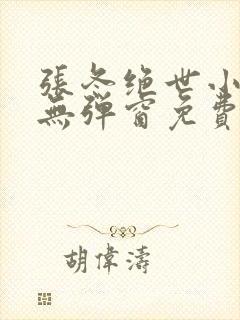 張冬绝世小
無弹窗免費
胡偉濤